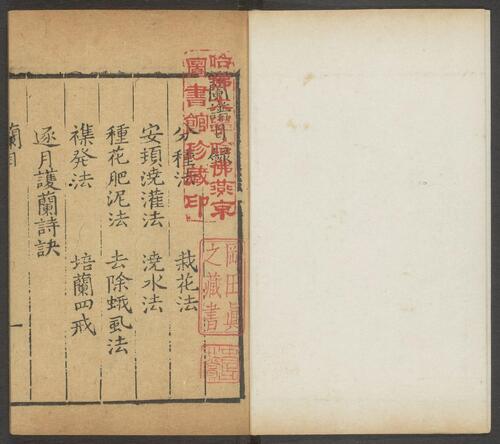 蘭譜目錄
分種法 栽花法
安頓澆灌法 澆水法
種花肥泥法 去除蟣虱法
襍發法 培蘭四戒
逐月護蘭詩訣
蘭目
一
哈佛大學哈佛燕京
圖書館珍藏印
岡田真
之藏書